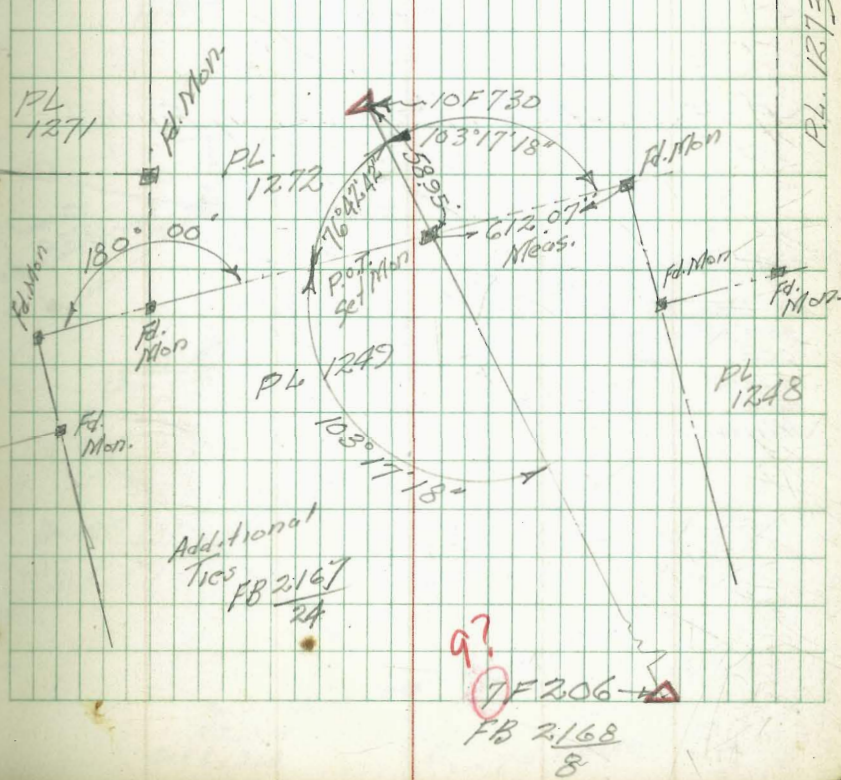 P.L. 1273
Fd. Mon.
PL
1271
PL.
1272
10F730
103°17'18"
58.95'
76°42'42"
Fd. Mon
612.07'
Meas.
P.O.T.
Set Mon
180° 00'
Fd. Mon
Fd.
Mon
Fd. Mon
Fd.
Mon.
PL 1249
PL
1248
Fd.
Mon.
103°17'18"
Additional
Ties
FB 2167
24
9?
7F206
FB 2168
8